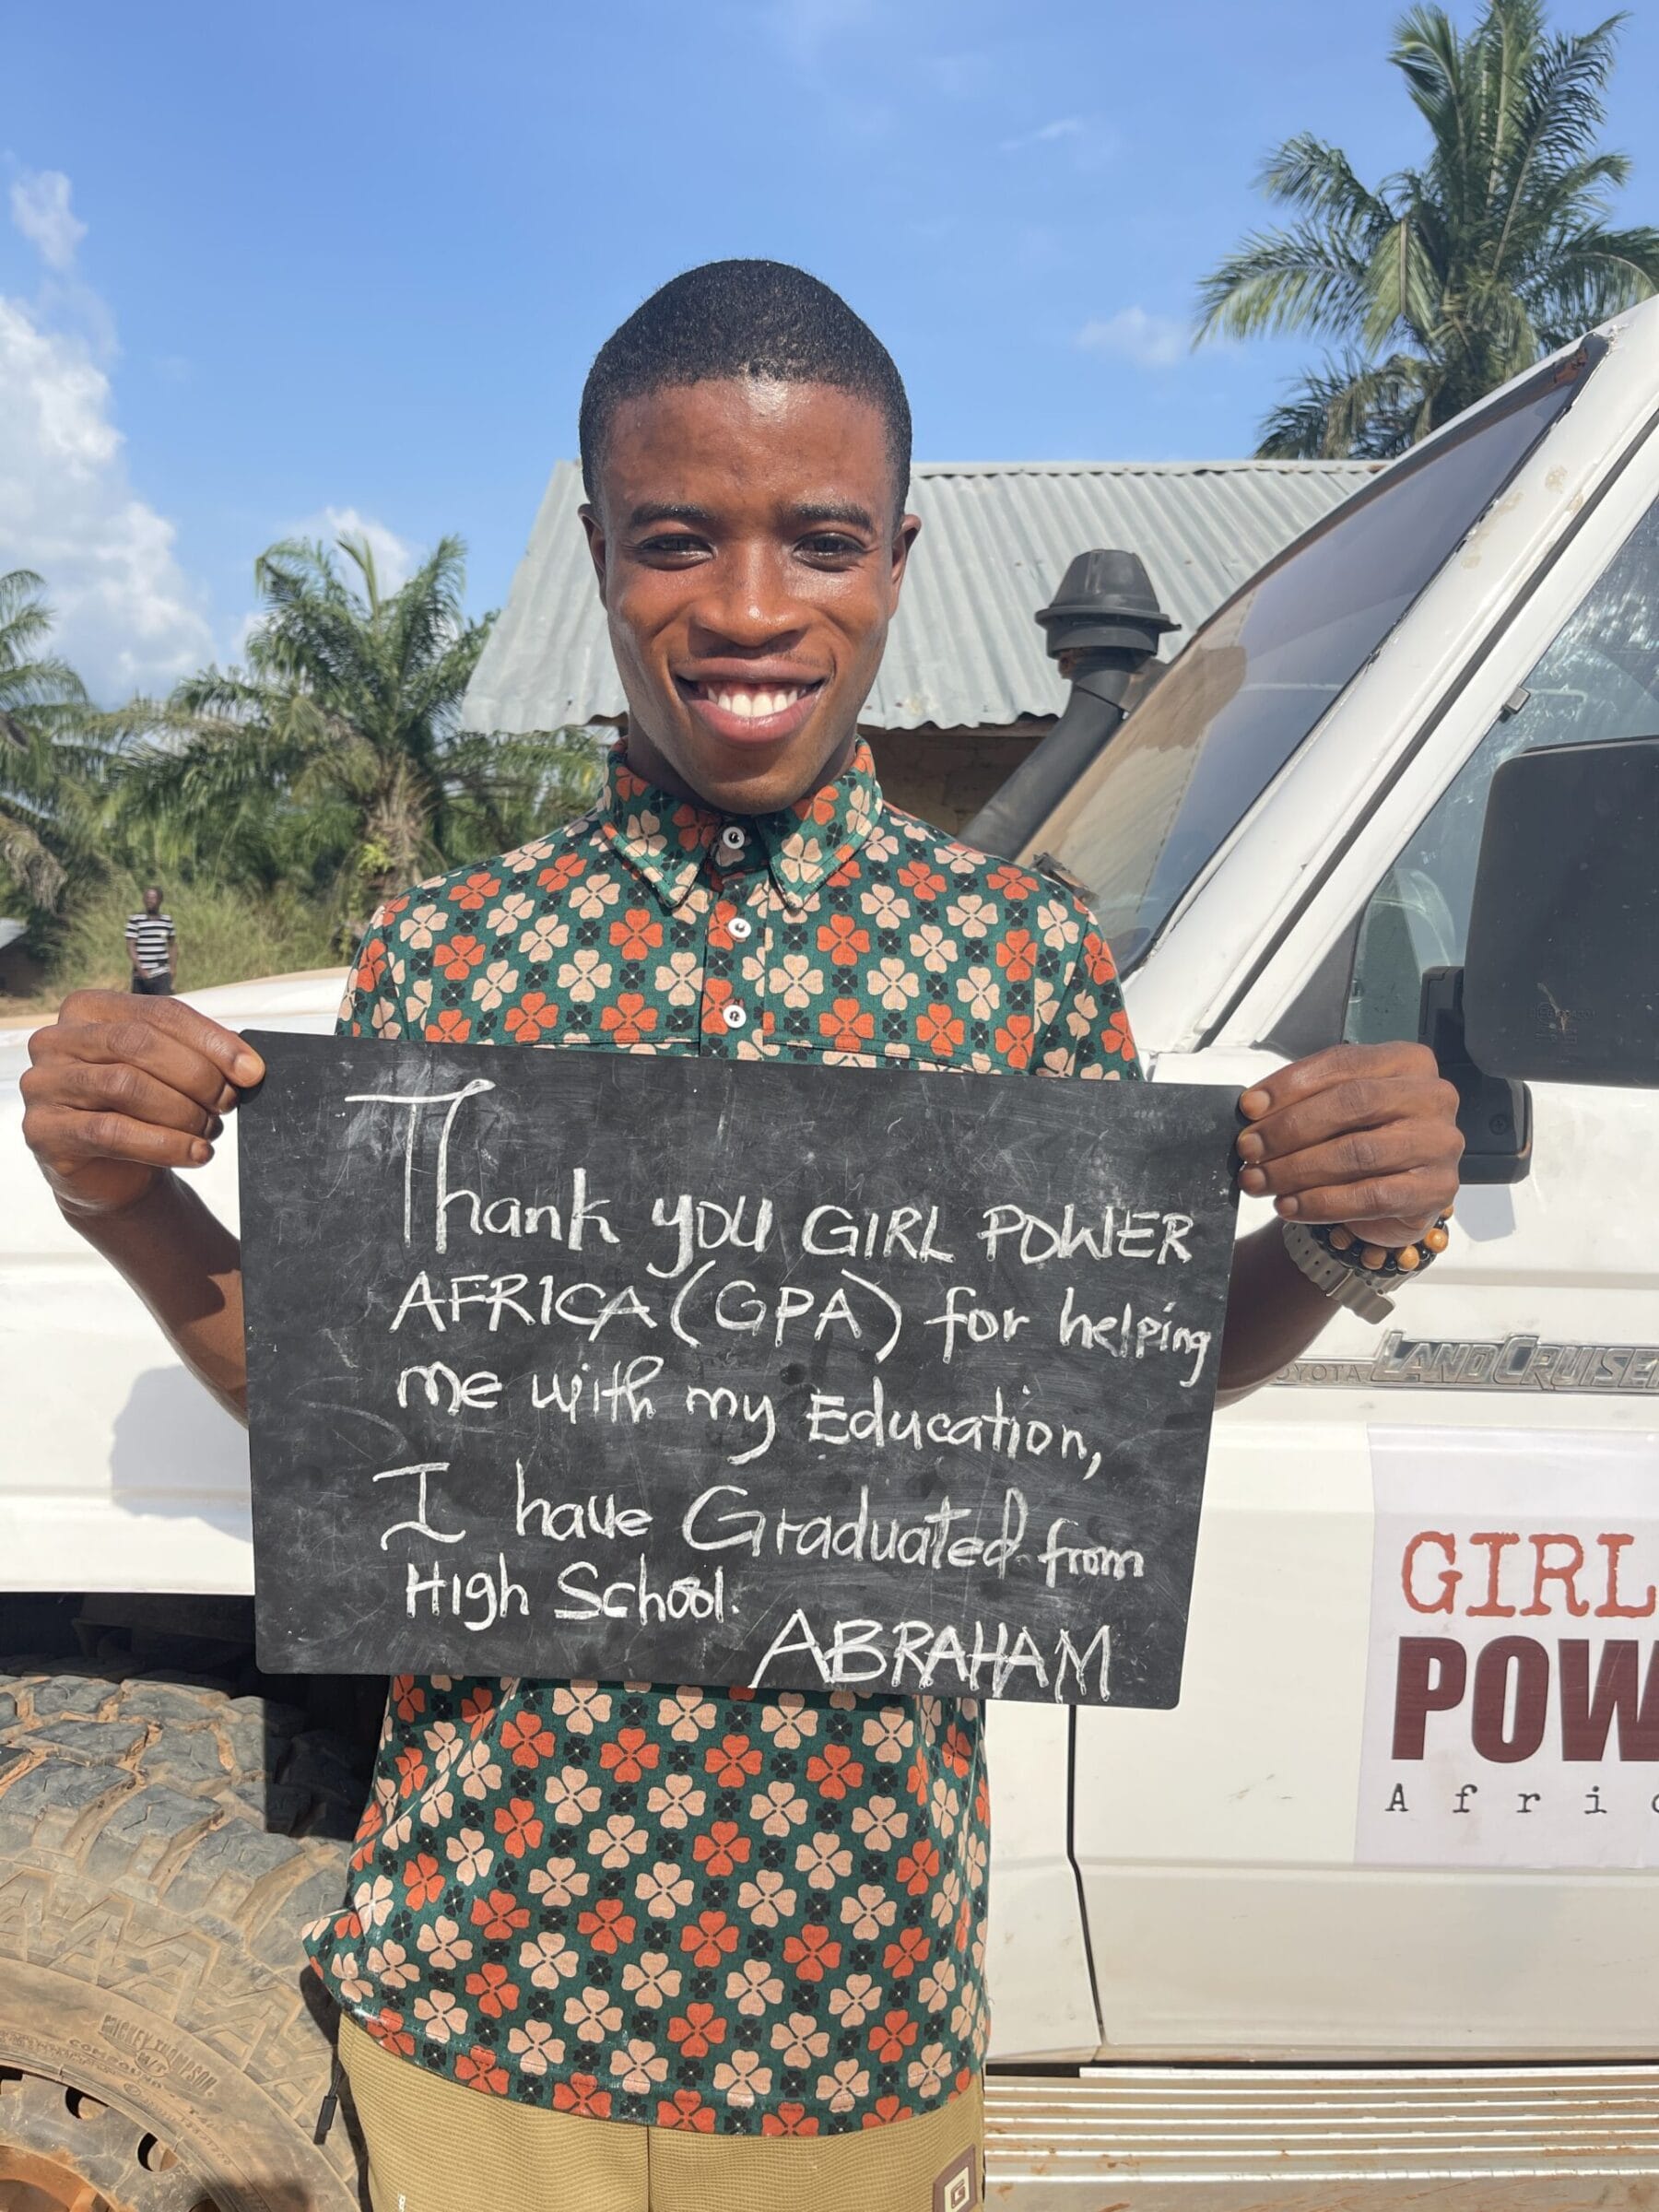 Thank you GIRL POWER
AFRICA (GPA) for helping
me with my Education,
I have Graduated from
High School.
ABRAHAM
TOYOTA LANDCRUISER
GIRL
POW
Afric
MICKEY THOMPSON
COMPOUND
G